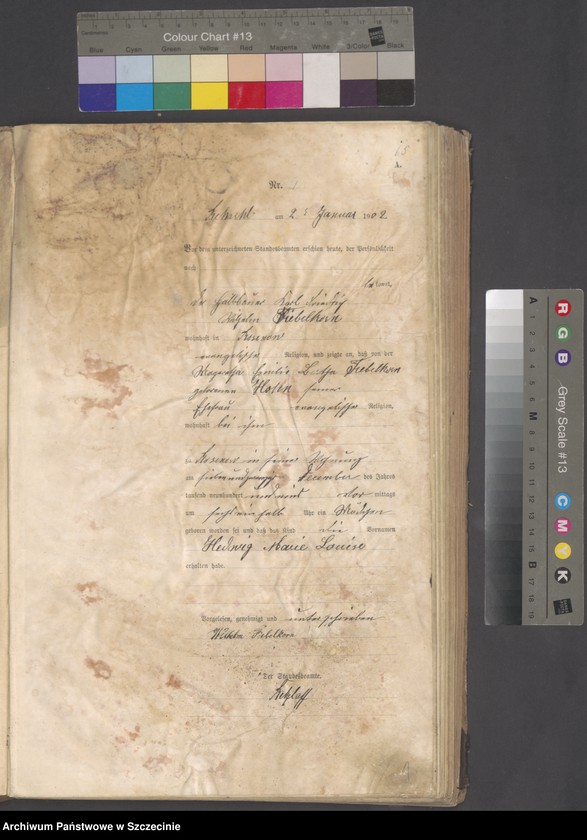 Colour Chart #13
Blue Cyan Green Yellow Red Magenta White 3/Color Black
A.
Nr.
am 2 Januar 1902.
Vor dem unterzeichneten Standesbeamten erschien heute, der Persönlichkeit
nach
kannt,
der Halbbauer Karl Friedrich
Wilhelm Fiebelkorn
wohnhaft in Koseron
evangelische Religion, und zeigte an, daß von der
Emilie Bertha Fiebelkorn
geborenen seiner
Ehefrau evangelische Religion,
wohnhaft bei ihm
zu Koseron in seiner Wohnung
am December des Jahres
tausend neunhundert und eins vormittags
um sechs ein halb Uhr ein Mädchen
geboren worden sei und daß das Kind die Vornamen
Hedwig Marie Louise
erhalten habe.
Vorgelesen, genehmigt und unterschrieben
Wilhelm Fiebelkorn
Der Standesbeamte.
A 1 2 3 4 5 6 M 8 9 10 11 12 13 14 15 B 17 18 19
R G B
Grey Scale #13
C M Y K
Archiwum Państwowe w Szczecinie